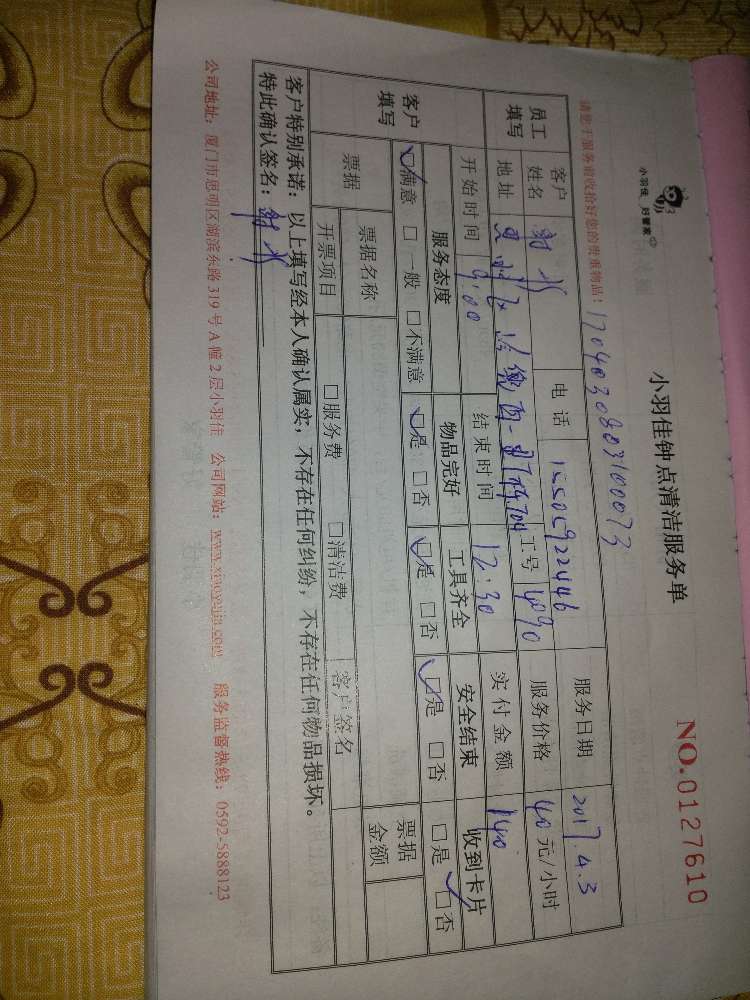 小羽佳 好管家
小羽佳钟点清洁服务单
NO.0127610
请您于服务前收拾好您的贵重物品!
1704030803100073
员工填写 客户姓名 电话 服务日期 2017.4.3
地址 工号 4090 服务价格 40元/小时
开始时间 9:00 结束时间 12:30 实付金额 140
客户填写 服务态度 物品完好 工具齐全 安全结束 收到卡片
☑满意 □一般 □不满意 ☑是 □否 ☑是 □否 ☑是 □否 □是 ☑否
票据 票据名称 票据金额
开票项目 □服务费 □清洁费 客户签名
客户特别承诺:以上填写经本人确认属实,不存在任何纠纷,不存在任何物品损坏。
特此确认签名:
公司地址:厦门市思明区湖滨东路319号A幢2层小羽佳 公司网站:www.xiaoyujia.com 服务监督热线:0592-5888123